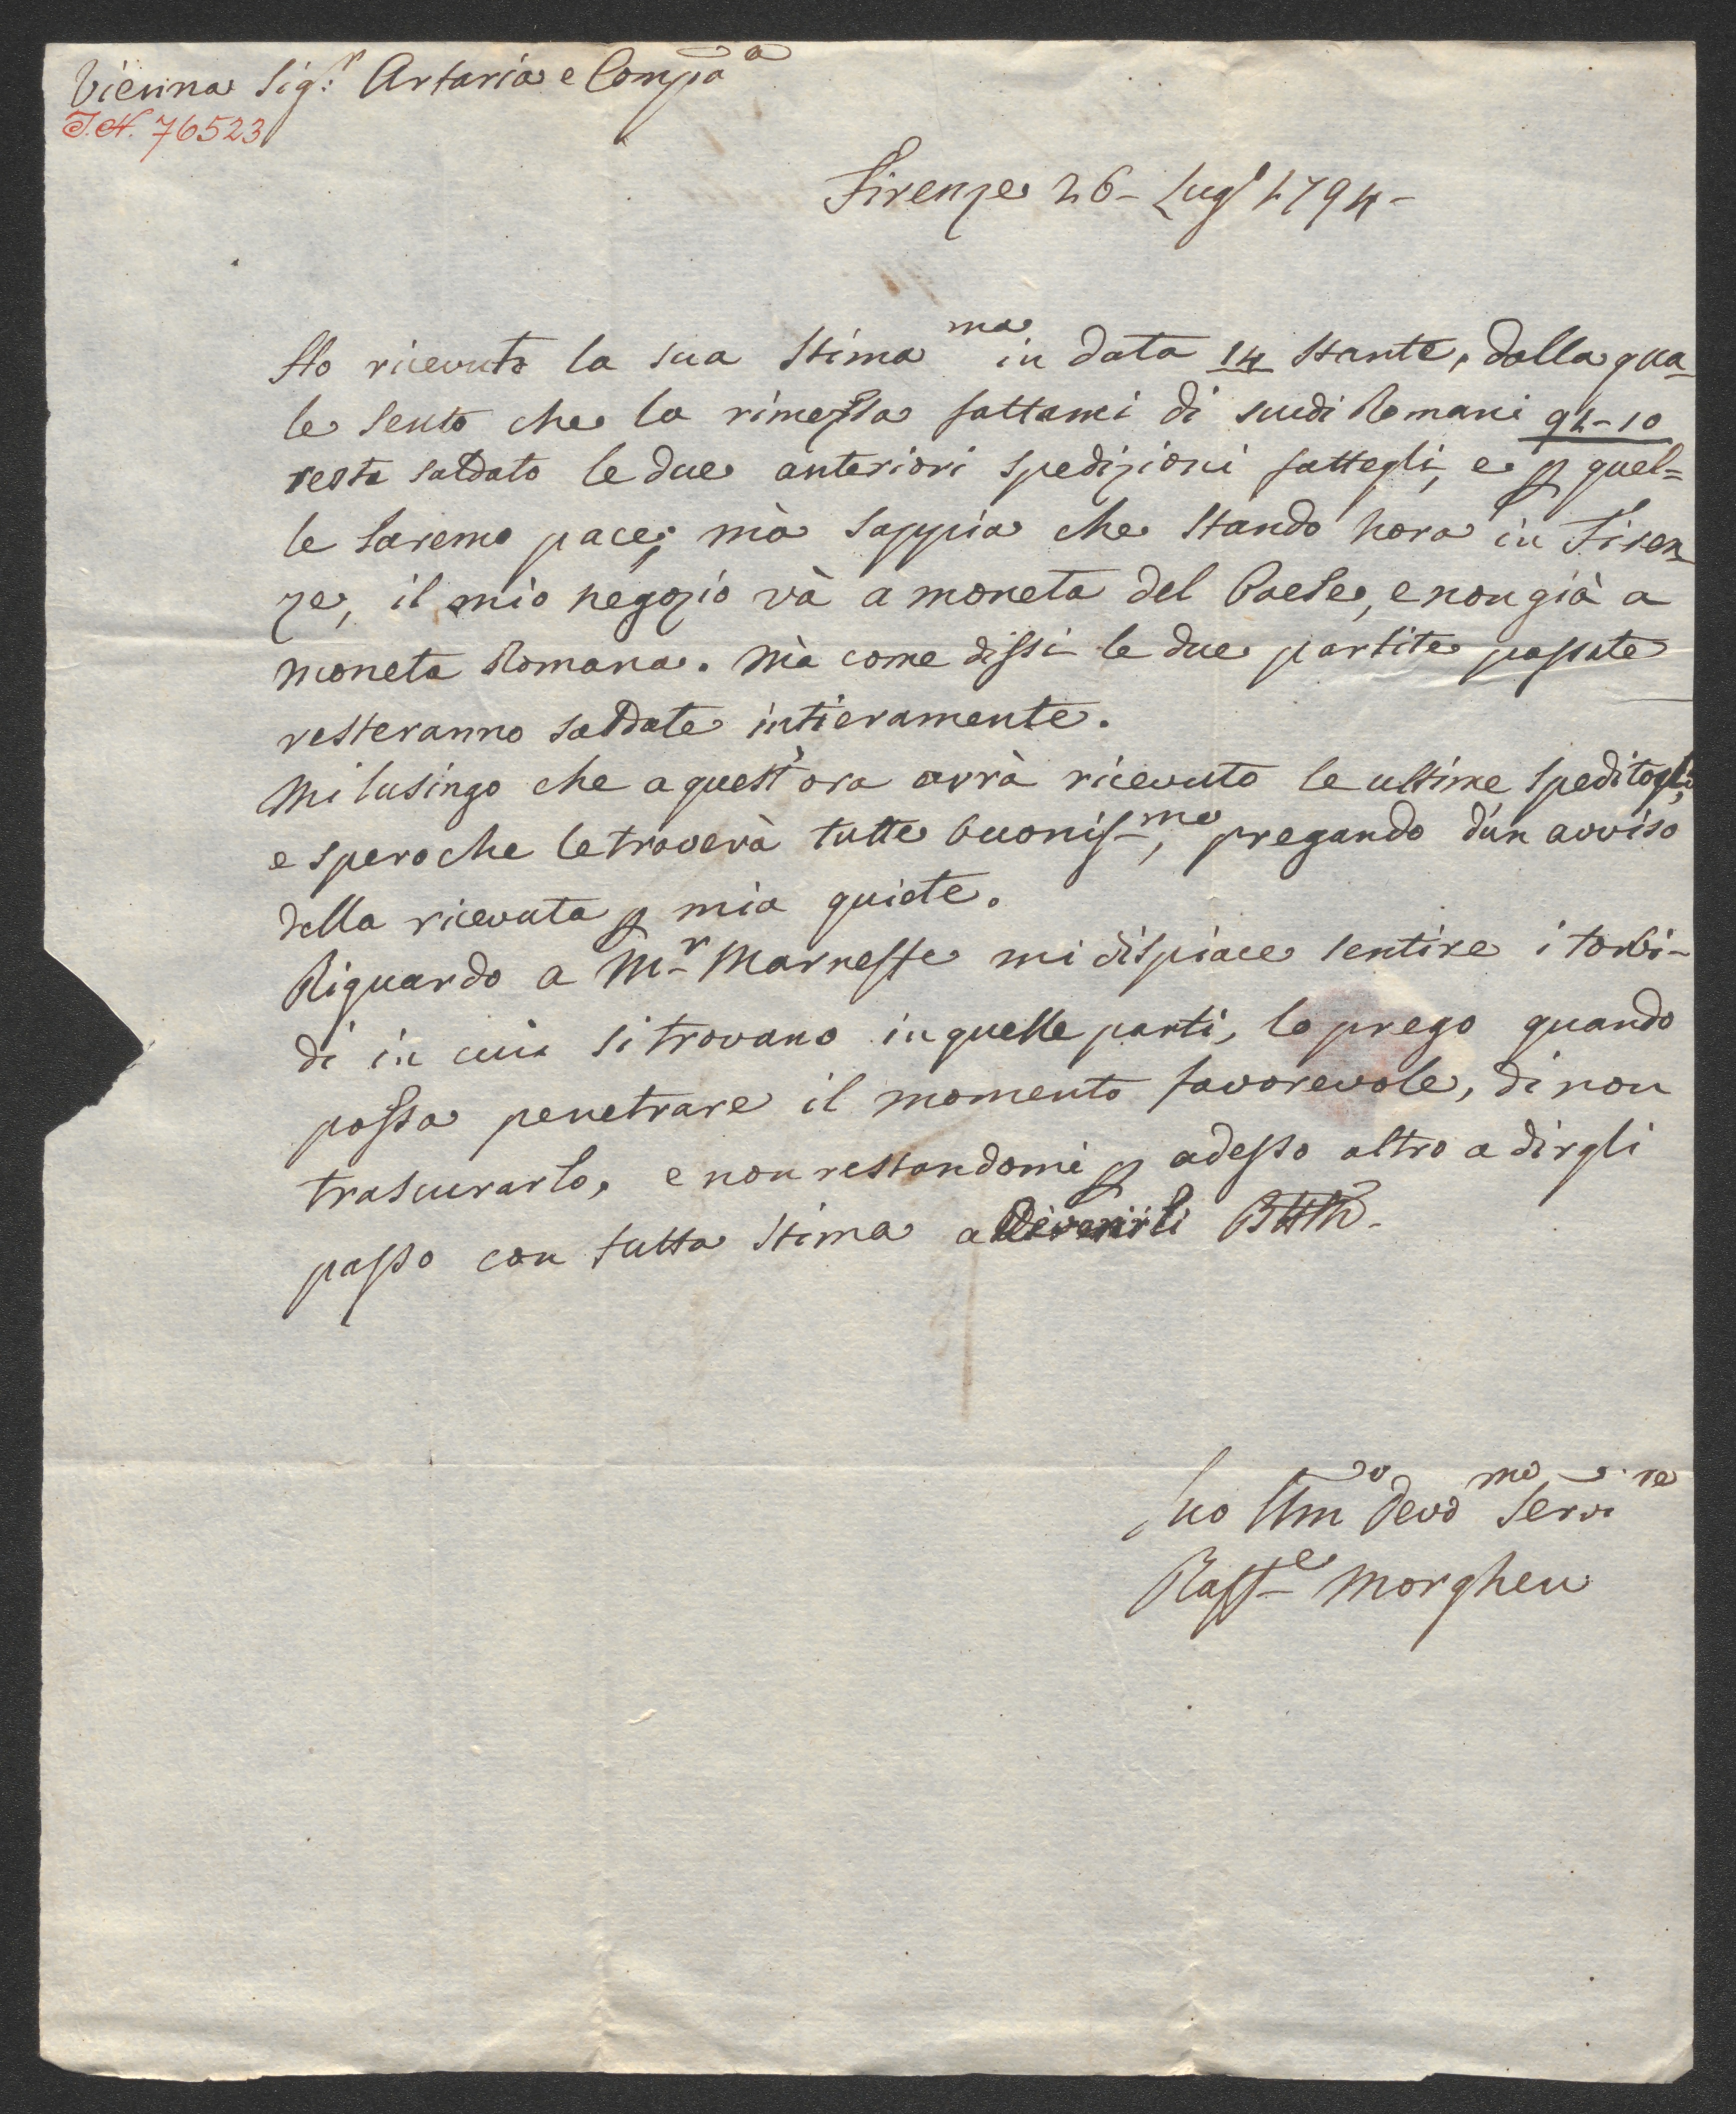 Vienna Sig.r Artaria e Compa a
I.N. 76523
Firenze 26 - Lug.o 1794 -
Ho ricevuto la sua stima ma in data 14 stante, dalla qua-
le sento che la rimessa fattami di scudi Romani 91-10
resta saldato le due anteriori spedizioni fattegli, e p quel=
le saremo pace; mà sappia che stando hora in Firen
ze, il mio negozio và a moneta del Paese, e non già a
moneta Romana. Mà come dissi le due partite passate
resteranno saldate intieramente.
Mi lusingo che a quest'ora avrà ricevuto le ultime speditogli,
e spero che le troverà tutte buonis-me, pregando d'un avviso
della ricevuta p mia quiete.
Riguardo a M-r Marnesse mi dispiace sentire i torbi-
di in cui si trovano in quelle parti, lo prego quando
possa penetrare il momento favorevole, di non
trascurarlo, e non restandomi p adesso altro a dirgli
passo con tutta stima a
Suo Um o Devo mo Serv re
Raff-e Morghen